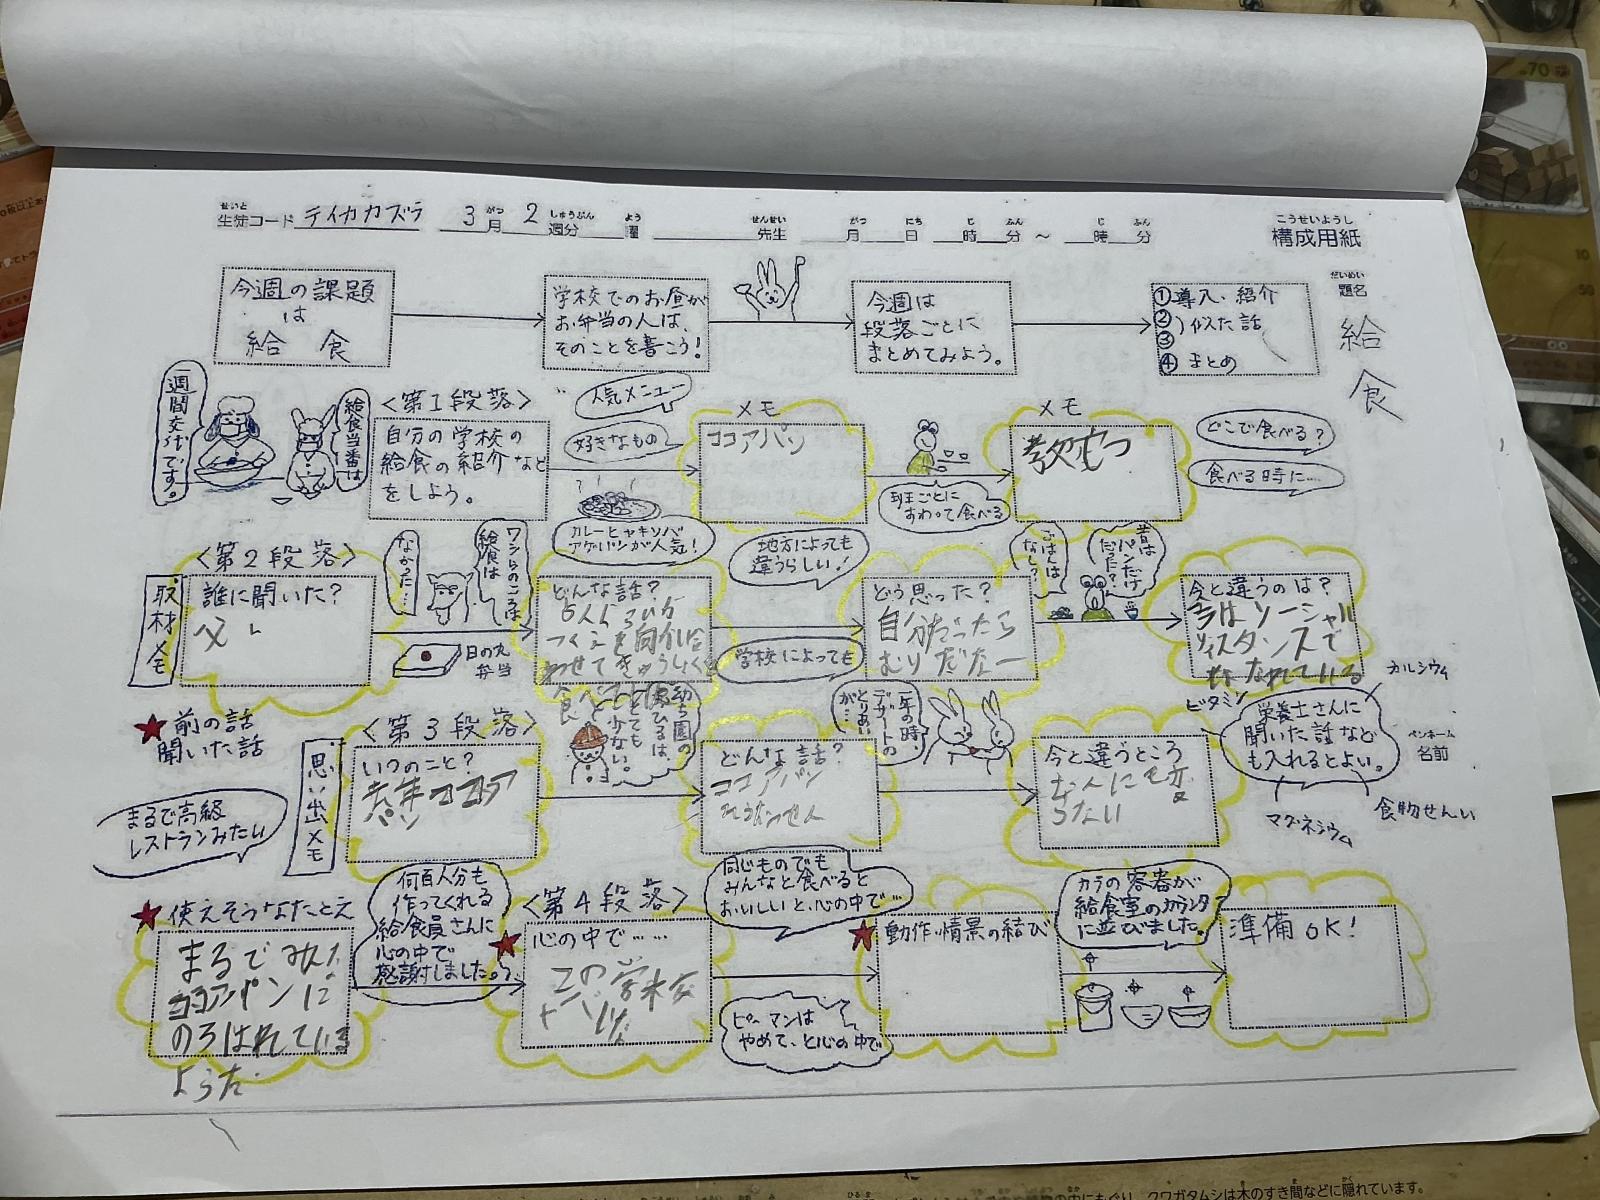 生徒コード テイカカズラ 3月 2週分 曜 先生 月 日 時 分 ~ 時 分
せいと がつ しゅうぶん よう せんせい がつ にち じ ふん じ ふん
こうせいようし
構成用紙
だいめい
題名
給食
今週の課題
は
給 食
学校でのお昼が
お弁当の人は、
そのことを書こう!
今週は
段落ごとに
まとめてみよう。
①導入・紹介
②
③ 似た話
④まとめ
一週間交代です。
給食当番は
<第1段落>
自分の学校の
給食の紹介など
をしよう。
人気メニュー
好きなもの
カレーとヤキソバ
アゲパンが人気!
メモ
ココアパン
班ごとに
すわって食べる
メモ
どこで食べる?
食べる時に…
<第2段落>
取材メモ
誰に聞いた?
父
ワシらのころは
給食は
なかった…
日の丸
弁当
どんな話?
地方によっても
違うらしい!
学校によっても
どう思った?
自分だったら
むりだなー
昔は
パンだけ
だった?
ごはんは
なし?
今と違うのは?
今はソーシャル
ディスタンスで
はなれている
★前の話
聞いた話
<第3段落>
思い出メモ
いつのこと?
去年ココア
パン
幼ち園の
お昼ひるは、
とても
少ない。
どんな話?
ココアパン
一年の時、
デザートの
とりあい
が…
今と違うところ
なんにも変
らない
ビタミン
カルシウム
栄養士さんに
聞いた話なども
入れるとよい。
マグネシウム
食物せんい
ペンネーム
名前
まるで高級
レストランみたい
★使えそうなたとえ
まるでみんな
ココアパンに
のろはれている
ようだ.
何百人分も
作ってくれる
給食員さんに
心の中で
感謝しました。
<第4段落>
★心の中で……
この学校
ヤバいな
同じものでも
みんなと食べると
おいしいと、心の中で…
ピーマンは
やめて、と心の中で
★動作・情景の結び
カラの容器が
給食室のカウンタ
に並びました。
準備OK!
クワガタムシは木のすき間などに隠れています。